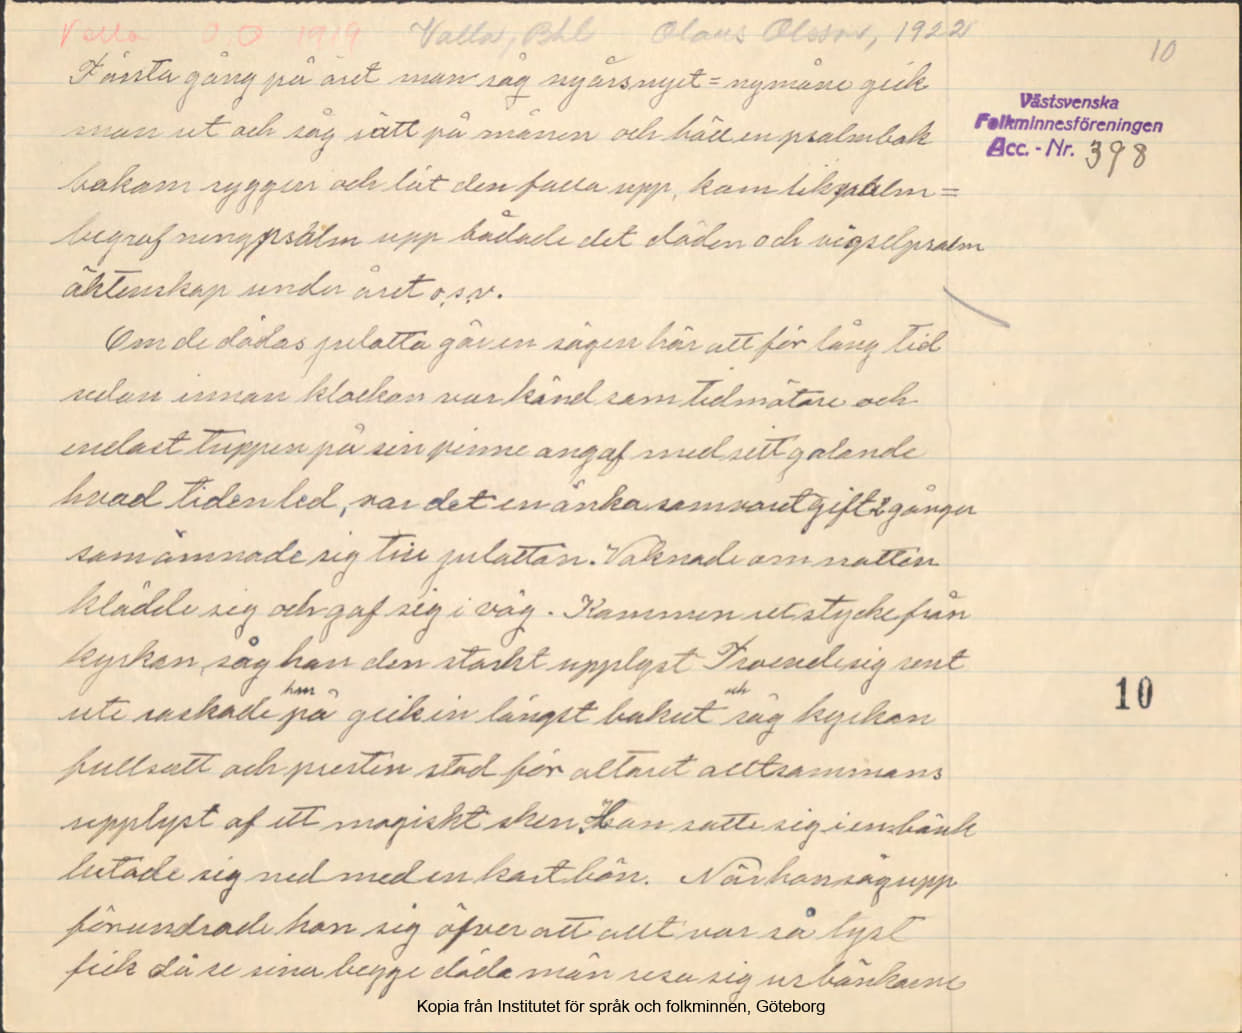 Valla O.O 1919 Valla, Bhl Olaus Olsson, 1922
10
Första gång på året man såg nyårsnyet = nymåne gick
Västsvenska
Folkminnesföreningen
Acc. - Nr. 398
man ut och såg rätt på månen och höll en psalmbok
bakom ryggen och lät den falla upp, kom likpsalm =
begrafningpsalm upp bådade det döden och vigselpsalm
äktenskap under året o.s.v.
Om de dödas julotta går en sägen här att för lång tid
sedan innan klockan var känd som tidmätare och
endast tuppen på sin pinne angaf med sitt galande
hvad tiden led, var det en änka som varit gift 2 gånger
som ämnade sig till julottan. Vaknade om natten
klädde sig och gaf sig i väg. Kommen ut stycke från
kyrkan, såg hon den starkt upplyst Troende sig sent
ute raskade hon på gick in längst bakut och såg kyrkan
fullsatt och presten stod för altaret alltsammans
upplyst af ett magiskt sken. Hon satte sig i en bänk
lutade sig ned med en kort bön. När hon såg upp
förundrade hon sig öfver att allt var så tyst
fick då se sina begge döda män resa sig ur bänkarne
10
Kopia från Institutet för språk och folkminnen, Göteborg